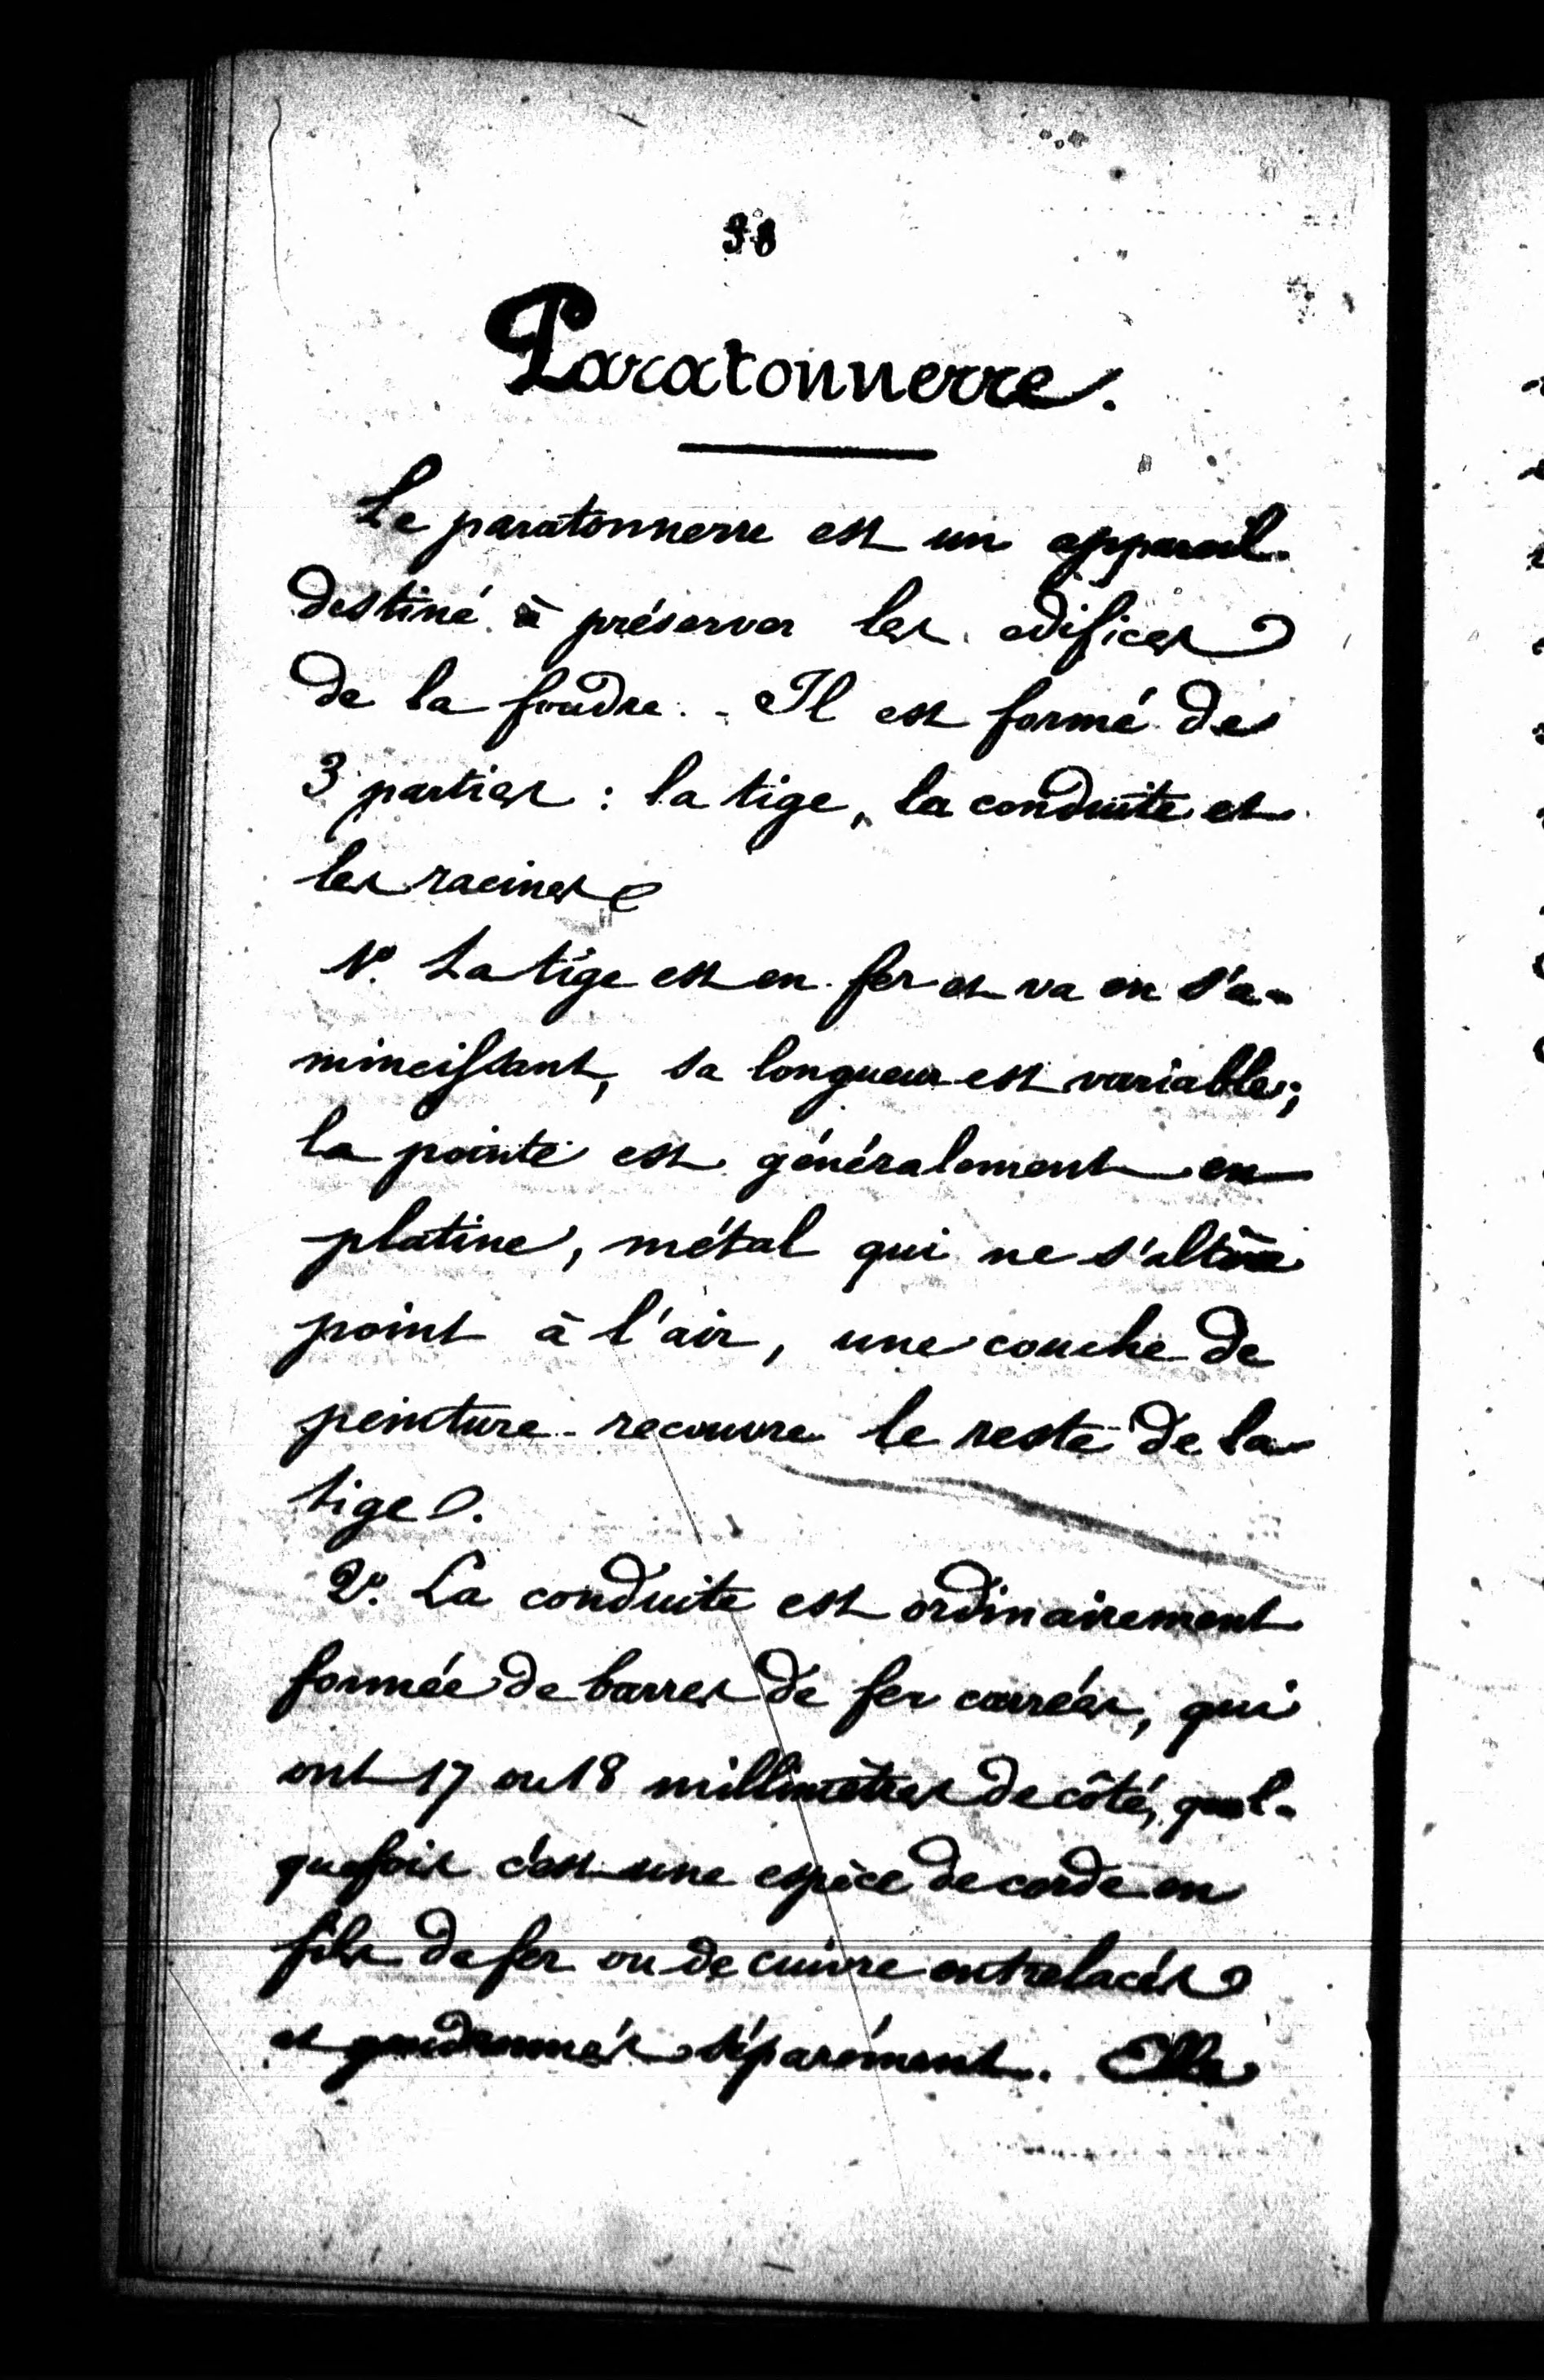 38
Paratonnerre.
Le paratonnerre est un appareil
destiné à préserver les édifices
de la foudre. - Il est formé de
3 parties : la tige, la conduite et
les racines
1º. La tige est en fer et va en s'a-
mincissant, sa longueur est variable;
la pointe est généralement en
platine, métal qui ne s'altère
point à l'air, une couche de
peinture recouvre le reste de la
tige.
2º. La conduite est ordinairement
formée de barres de fer carrées, qui
ont 17 ou 18 millimètres de côté, quel-
quefois c'est une espèce de corde en
fils de fer ou de cuivre entrelacés
et goudronnés séparément. Elle